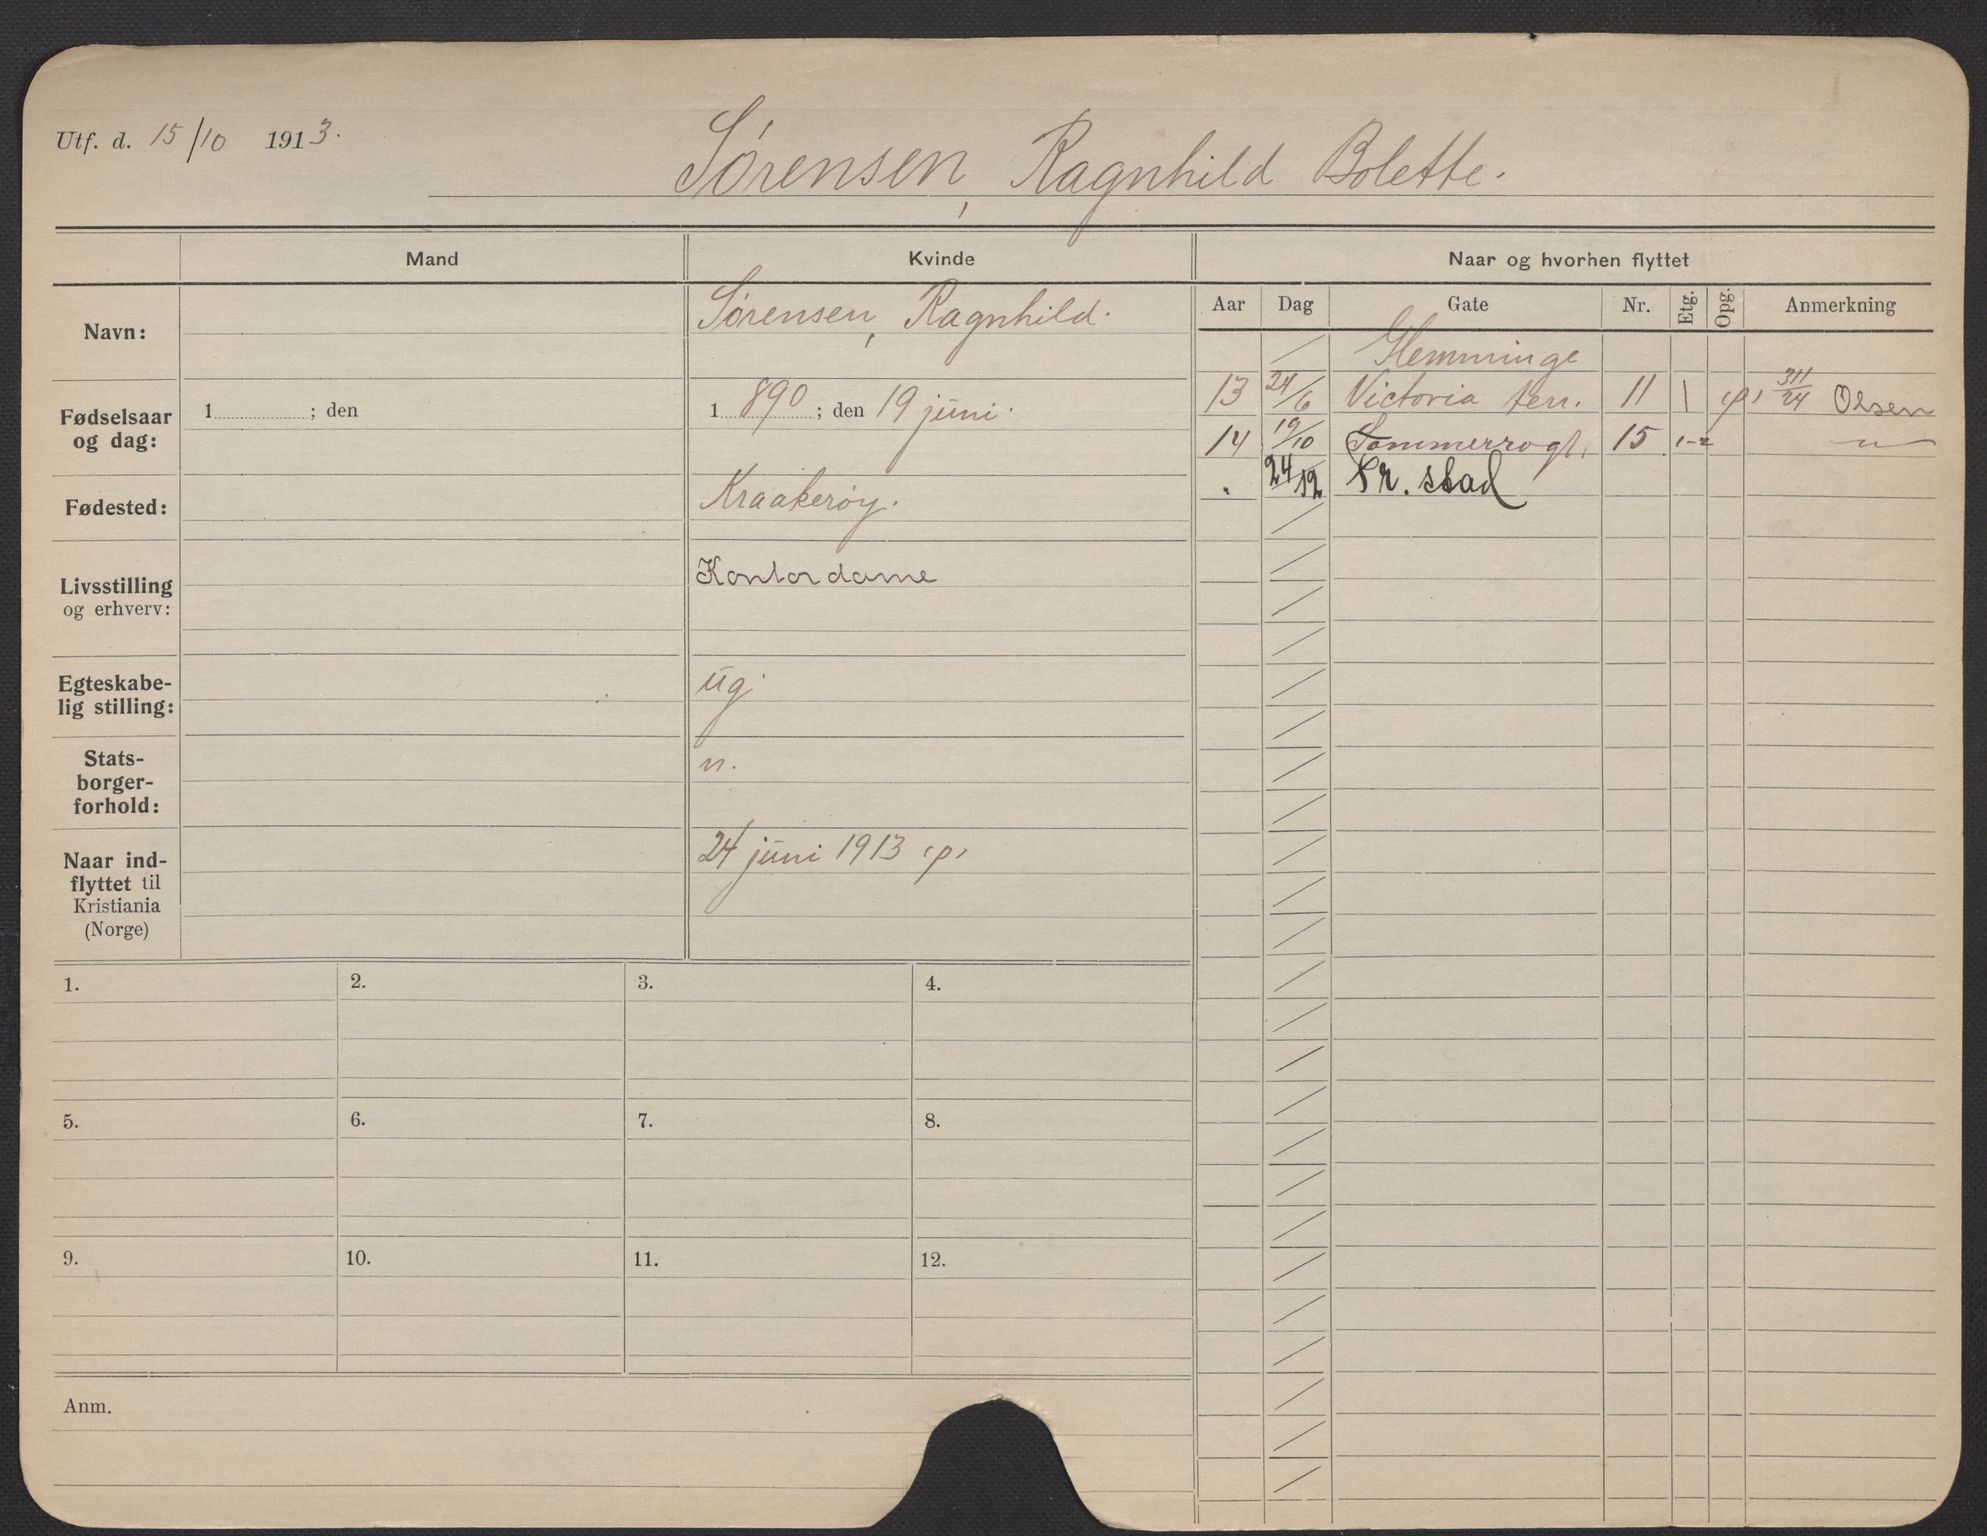 Utf. d. 15/10 1913.
Sørensen, Ragnhild Bolette.
Mand
Kvinde
Naar og hvorhen flyttet
Navn:
Sørensen, Ragnhild.
Fødselsaar og dag:
1 ; den
1 890 ; den 19 juni.
Fødested:
Kraakerøy.
Livsstilling og erhverv:
Kontordame
Egteskabe-
lig stilling:
ug.
Stats-
borger-
forhold:
n.
Naar ind-
flyttet til
Kristiania
(Norge)
24 juni 1913
Aar Dag Gate Nr. Etg. Opg. Anmerkning
Glemminge
13 24/6 Victoria terr. 11 1 311/24 Olsen
14 19/10 Sommerrogt. 15 1-2 — " —
" 24/12 Fr. stad
1. 2. 3. 4.
5. 6. 7. 8.
9. 10. 11. 12.
Anm.